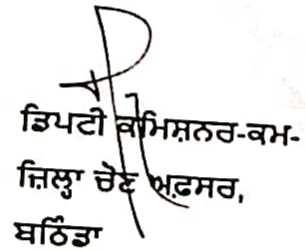 ਡਿਪਟੀ ਕਮਿਸ਼ਨਰ-ਕਮ-
ਜ਼ਿਲ੍ਹਾ ਚੋਣ ਅਫ਼ਸਰ,
ਬਠਿੰਡਾ